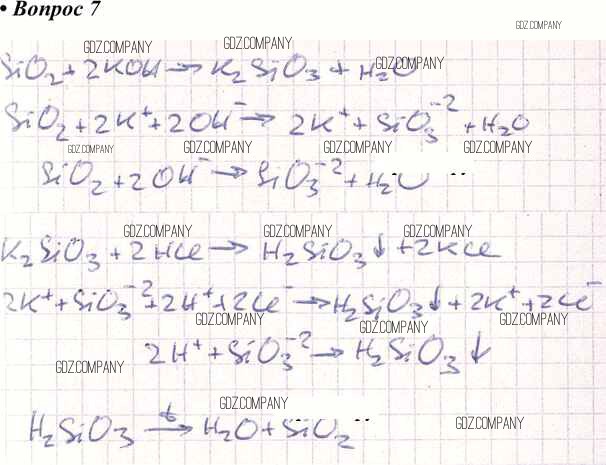 • Вопрос 7
GDZ.COMPANY
GDZ.COMPANY GDZ.COMPANY
SiO₂ + 2KOH → K₂SiO₃ + H₂O
GDZ.COMPANY
GDZ.COMPANY GDZ.COMPANY
SiO₂ + 2K⁺ + 2OH⁻ → 2K⁺ + SiO₃⁻² + H₂O
GDZ.COMPANY GDZ.COMPANY GDZ.COMPANY GDZ.COMPANY
SiO₂ + 2OH⁻ → SiO₃⁻² + H₂O
GDZ.COMPANY GDZ.COMPANY GDZ.COMPANY
K₂SiO₃ + 2HCl → H₂SiO₃↓ + 2KCl
2K⁺ + SiO₃⁻² + 2H⁺ + 2Cl⁻ → H₂SiO₃↓ + 2K⁺ + 2Cl⁻
GDZ.COMPANY GDZ.COMPANY GDZ.COMPANY
2H⁺ + SiO₃⁻² → H₂SiO₃↓
GDZ.COMPANY
GDZ.COMPANY
H₂SiO₃ →t H₂O + SiO₂
GDZ.COMPANY